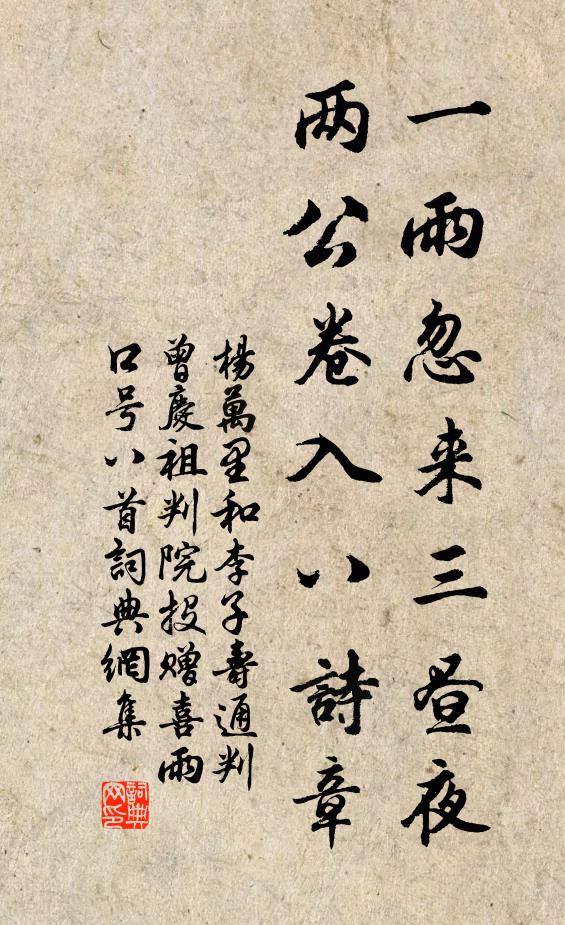 一雨忽来三昼夜
两公卷入八詩章
楊萬里和李子壽通判
曾慶祖判院投贈喜雨
口号八首詞典網集
詞典网印